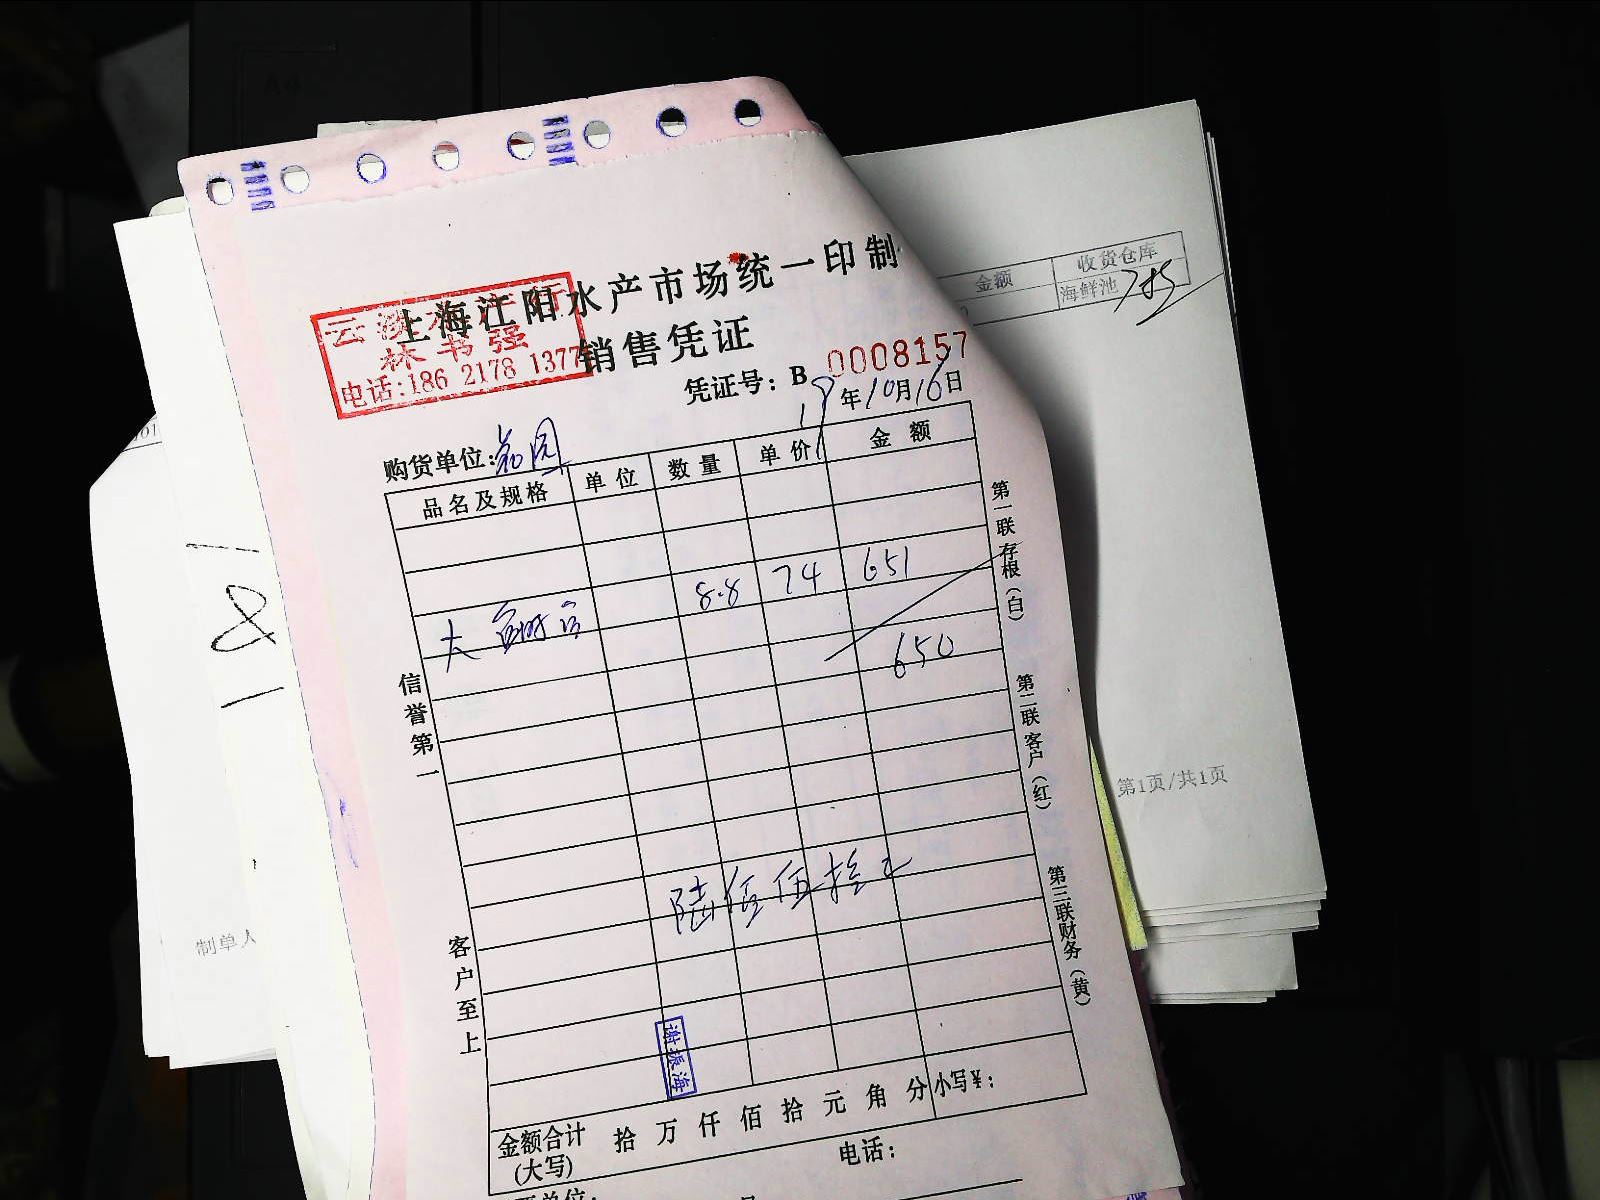 上海江阳水产市场统一印制
销售凭证
林书强
电话:186 2178 1377
凭证号: B 0008157
19年10月16日
购货单位:
品名及规格 单位 数量 单价 金额
大 8.8 74 651
650
陆佰伍拾元
谢振海
金额合计 拾 万 仟 佰 拾 元 角 分 小写¥:
(大写)
电话:
信誉第一
客户至上
第一联存根(白)
第二联客户(红)
第三联财务(黄)
金额 收货仓库
海鲜池
785
第1页/共1页
制单人